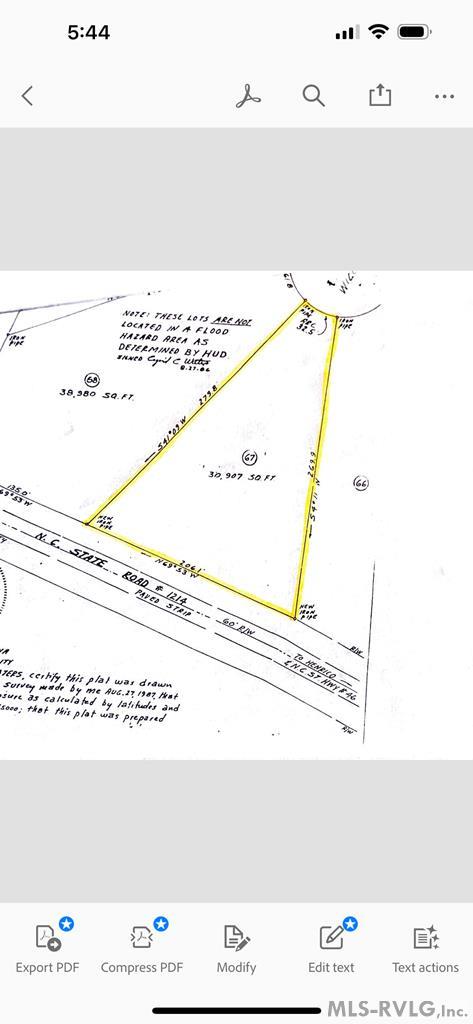 5:44
WIL
NOTE: THESE LOTS ARE NOT
LOCATED IN A FLOOD
HAZARD AREA AS
DETERMINED BY HUD.
SIGNED
8.27.86
IRON
PIPE
REC.
32.5
IRON
PIPE
IRON
PIPE
68
38,380 SQ. FT.
S41°03'W
279.8
67
30,907 SQ. FT
269.9
S4°11'W
66
135.0'
69°53'W
NEW
IRON
PIPE
206.1'
N69°53'W
NEW
IRON
PIPE
N.C. STATE ROAD # 1214
PAVED STRIP
60' R/W
R/W
TO HENRICO
& N C ST HWY # 46
R/W
TY
ITERS, certify this plat was drawn
survey made by me AUG. 27, 1987, that
osure as calculated by latitudes and
5000; that this plat was prepared
Export PDF
Compress PDF
Modify
Edit text
Text actions
MLS-RVLG,Inc.